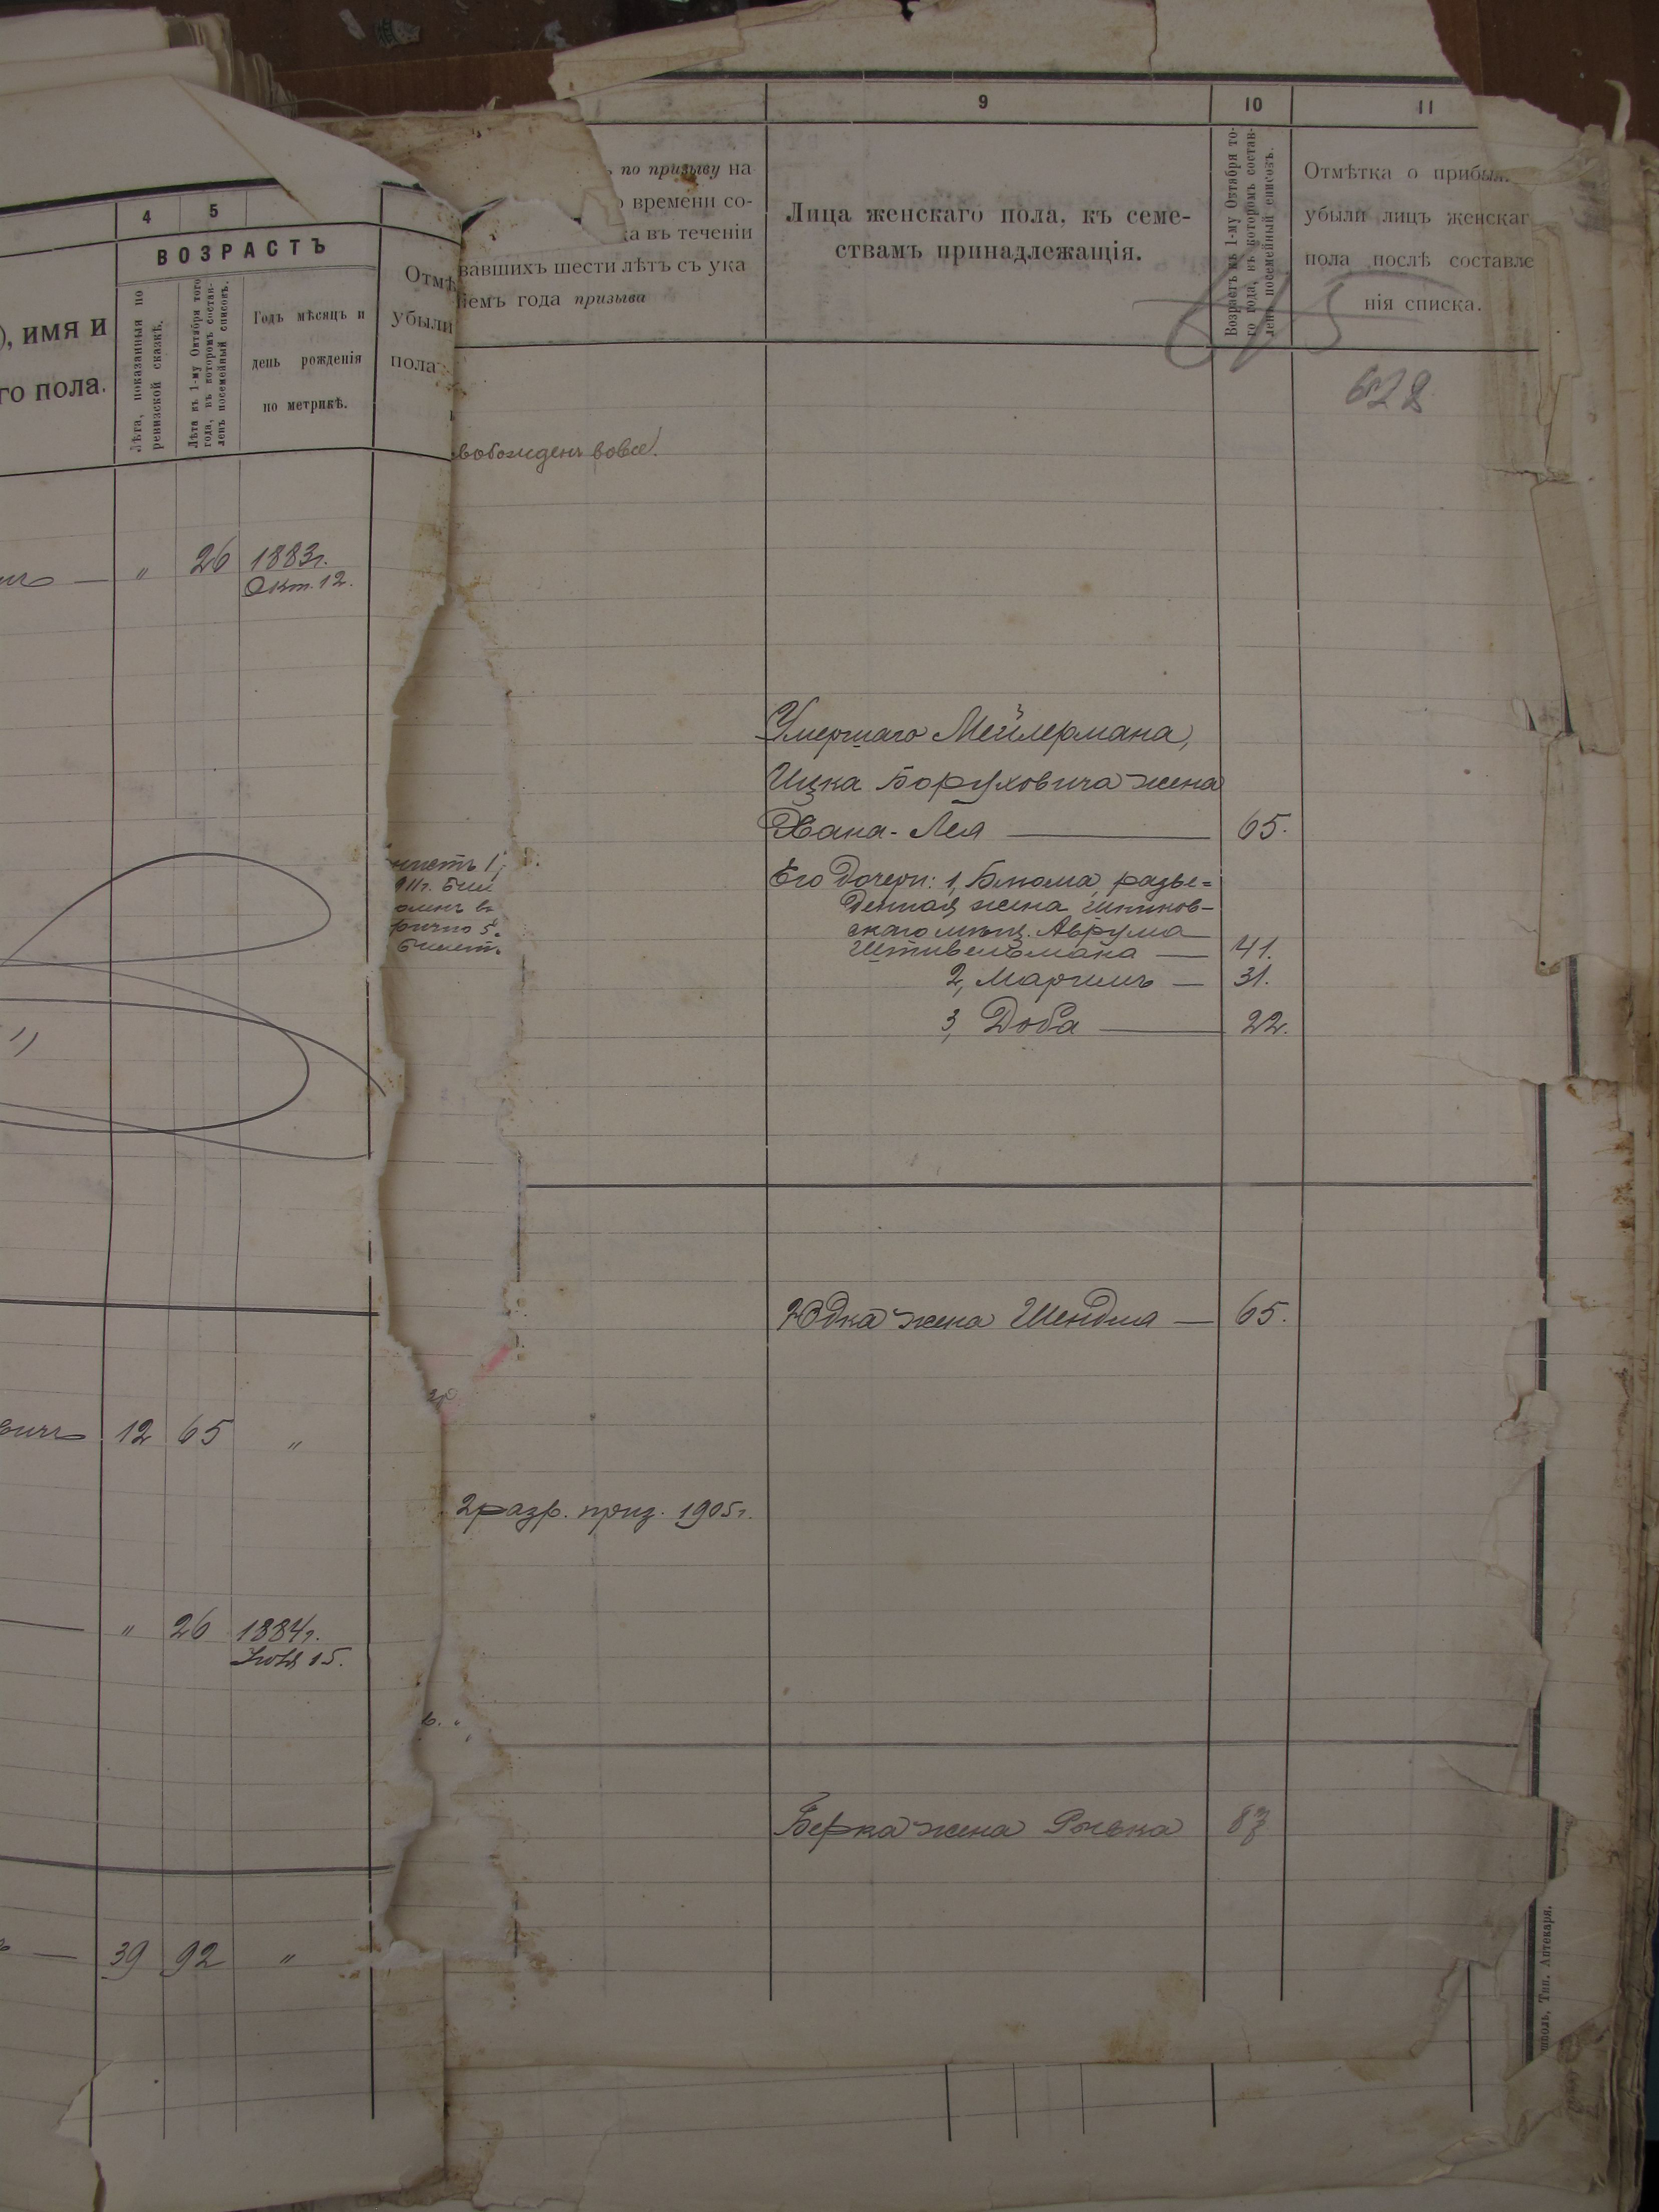 4 5
ВОЗРАСТЪ
), имя и
го пола.
Лѣта, показанныя по
ревизской сказкѣ.
Лѣта къ 1-му Октября того
года, въ которомъ состав-
ленъ посемейный списокъ.
Годъ мѣсяцъ и
день рожденія
по метрикѣ.
Отмѣ
убыли
пола
" 26 1883г.
Окт. 12.
12 65 "
" 26 1884г.
15.
39 92 "
9 10 11
по призыву на
времени со-
ка въ теченіи
вавшихъ шести лѣтъ съ ука
іемъ года призыва
Лица женскаго пола, къ семе-
ствамъ принадлежащія.
Возрастъ къ 1-му Октября то-
го года, въ которомъ состав-
ленъ посемейный списокъ.
Отмѣтка о прибыл
убыли лицъ женскаг
пола послѣ составле
нія списка.
628
вобожденъ вовсе.
Умершаго Мейлермана,
Ицка Боруховича жена
Хана-Лея — 65.
Его дочери: 1, Блюма, разве=
денная жена
скаго мѣщ. Аврума
Штивельмана — 41.
2, — 31.
3, Доба — 22.
Юдка жена Шендля — 65.
2 разр. приз. 1905г.
Берка жена
Тип. Аптекаря.